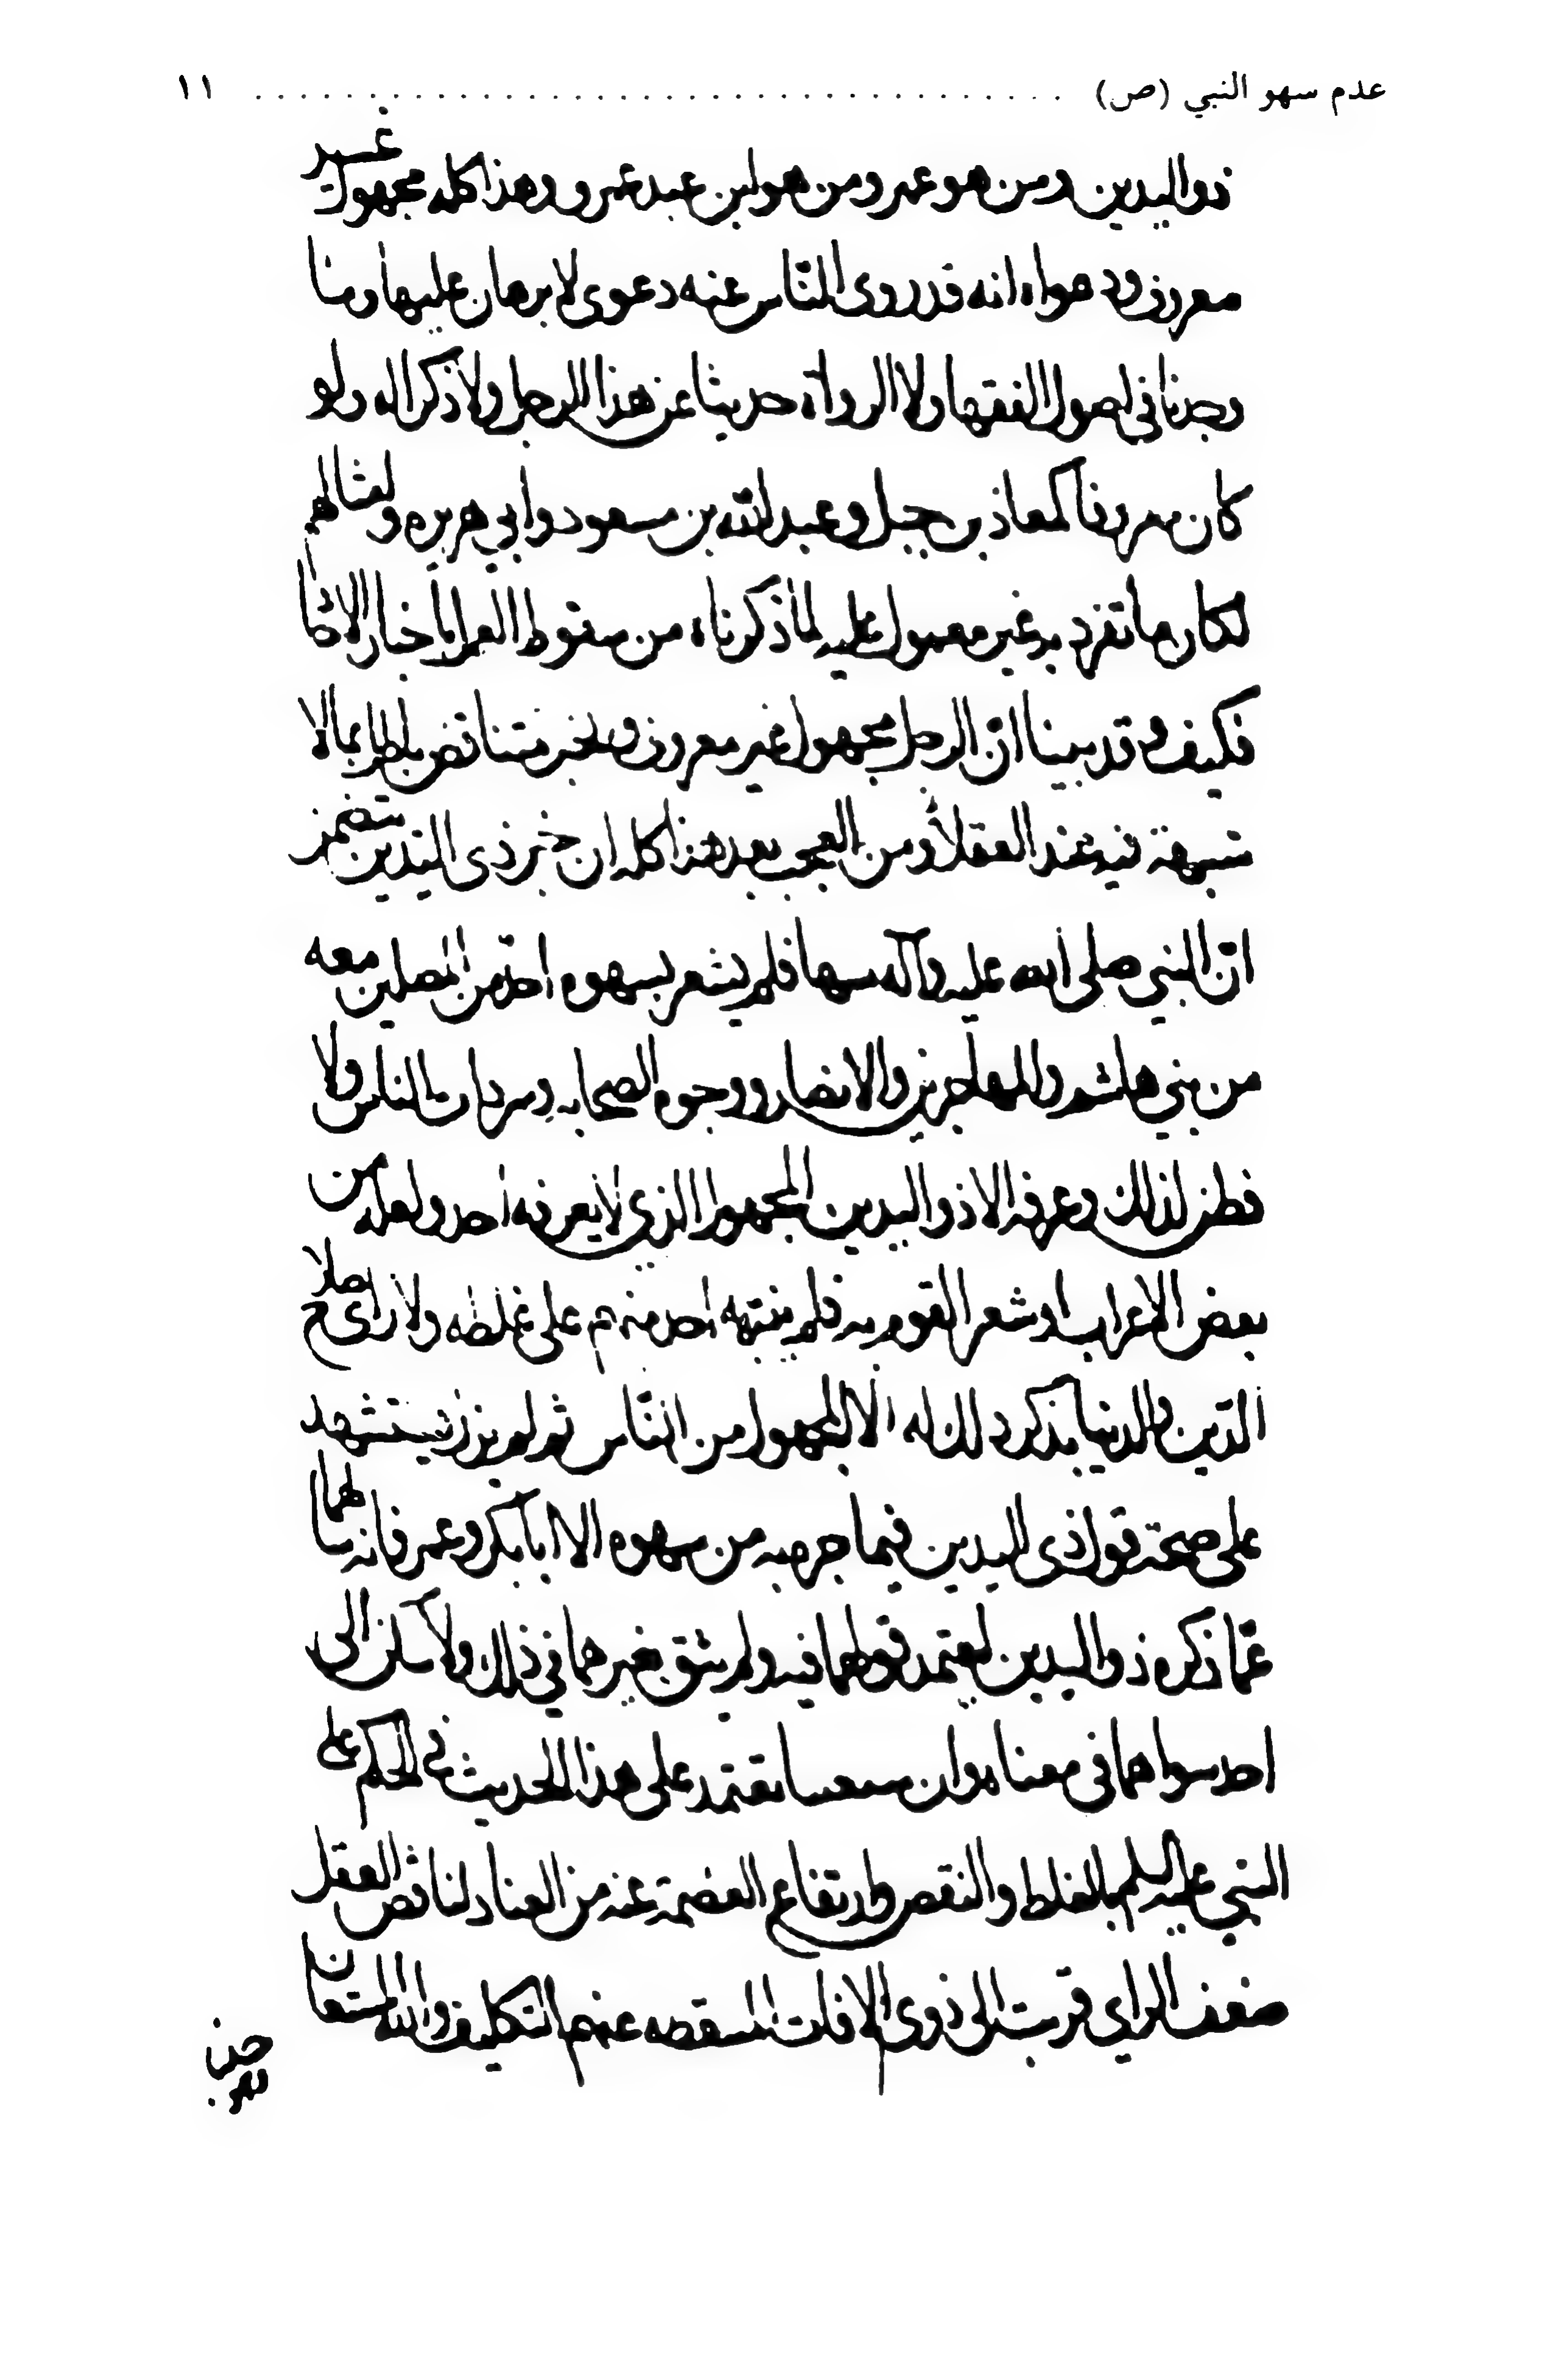 عدم سهو النبي (ص) ........................................ ١١
ذو اليدين ومن هو عمير ومن هو ابن عبد عمرو وهذا كله مجهول غير
معروف ودعواه انه قد روى الناس عنه دعوى لا برهان عليها وما
وجدنا في اصول الفقهاء ولا الرواة حديثا عن هذا الرجل ولا ذكرا له ولو
كان معروفا كمعاذ بن جبل وعبد الله بن مسعود وأبي هريره وامثالهم
لكان ما تفرد به غير معمول عليه لما ذكرناه من سقوط العمل باخبار الاحاد
فكيف وقد بينا ان الرجل مجهول غير معروف فخبر متناقض باطل بما لا
شبهة فيه عند العقلاء ومن العجب بعد هذا كله ان خبر ذي اليدين يتضمن
ان النبي صلى الله عليه وآله سها فلم يشعر بسهوه احد من المصلين معه
من بني هاشم والمهاجرين والانصار ووجوه الصحابه وسراة الناس ولا
فطن لذلك وعرفه الا ذو اليدين المجهول الذي لا يعرفه احد ولعله من
بعض الاعراب او شعر القوم به فلم ينبهه احد منهم على غلطه ولا راى صلاح
الدين والدنيا بذكر ذلك له الا المجهول من الناس ثم لم يكن يستشهد
على صحة قول ذي اليدين فيما خبر به من سهوه الا ابا بكر وعمر فانه سألهما
عما ذكره ذو اليدين ليعتمد قولهما فيه ولم يثق بغيرهما في ذلك ولا سكن الى
احد سواهما في معناه وان شيعيا يعتمد على هذا الحديث في الحكم على
النبي عليه السلم بالغلط والنقص وارتفاع العصمة عنه من العناد لناقص العقل
ضعيف الراي قريب الى ذوي الافات المسقطه عنهم التكليف والله المستعان